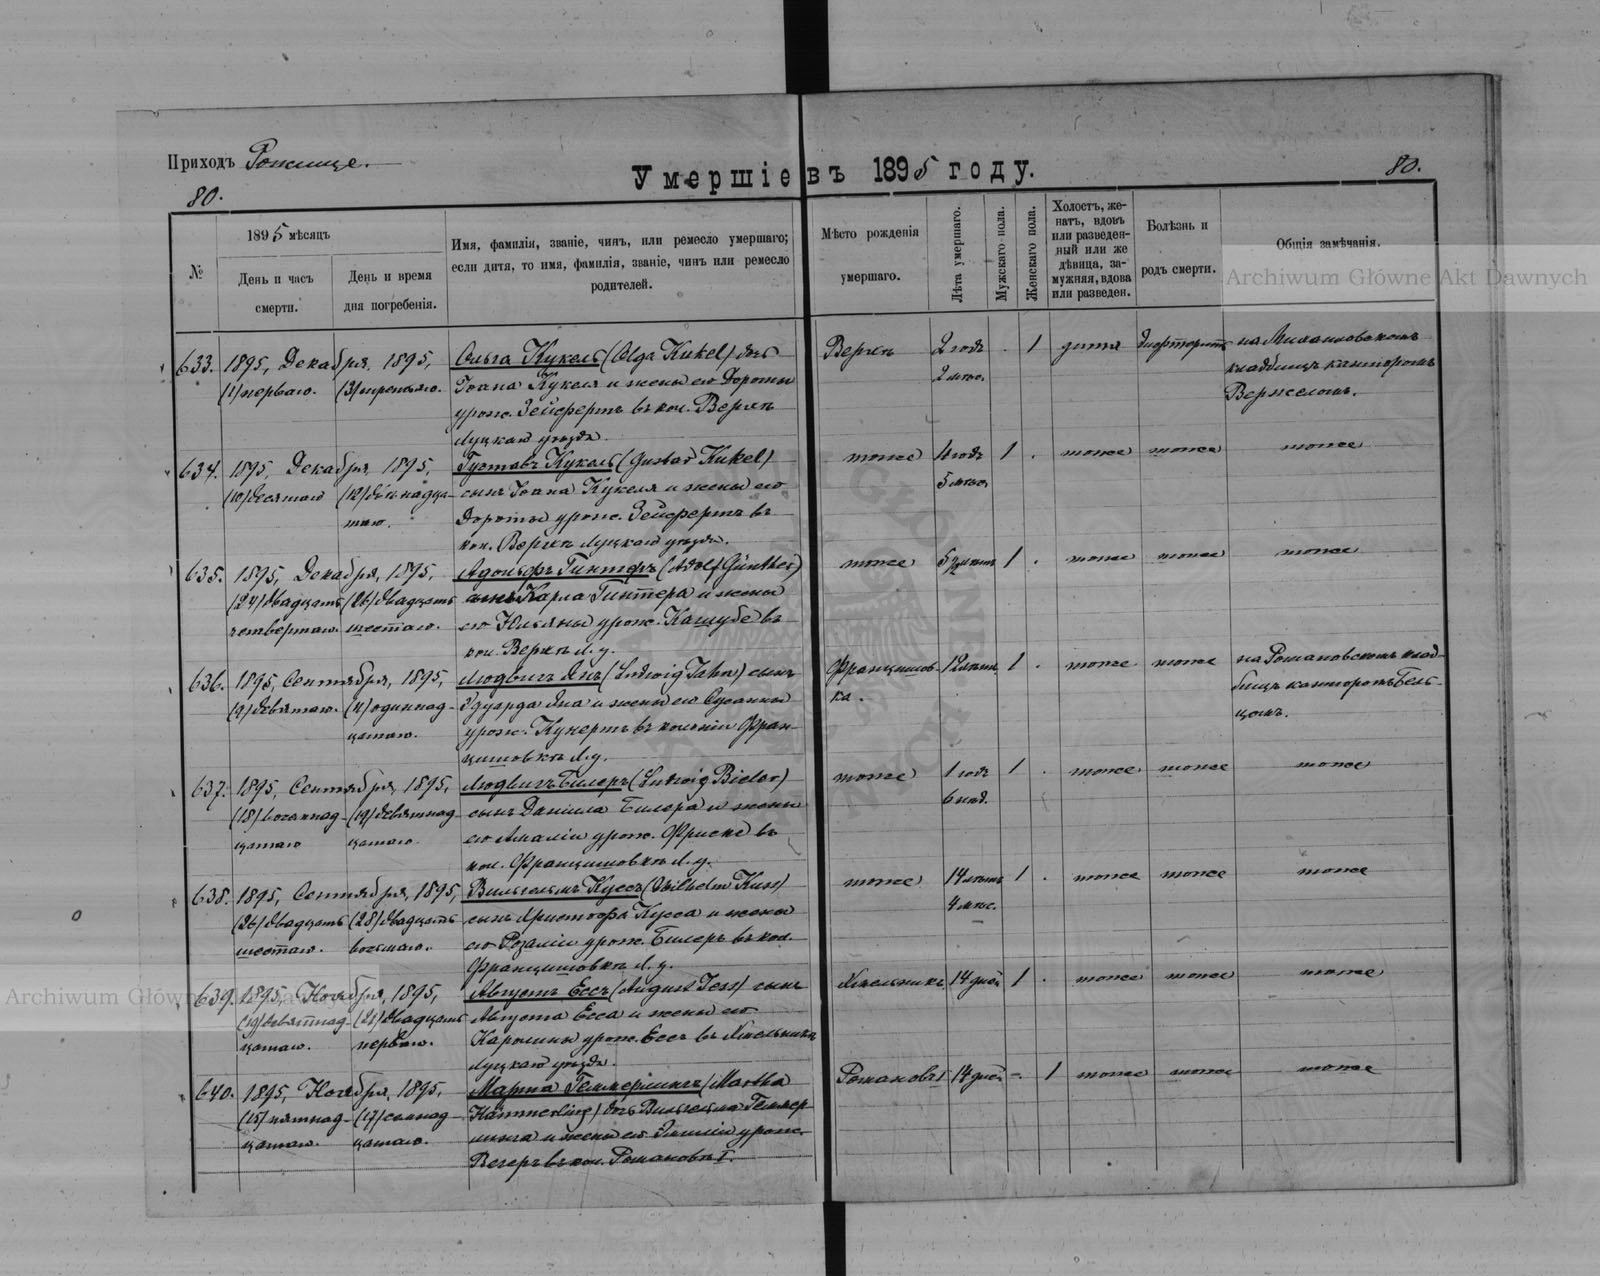 Приходъ Рожище.
Умершіе въ 1895 году.
80.
80.
№
1895 мѣсяцъ
День и часъ
смерти.
День и время
дня погребенія.
Имя, фамилія, званіе, чинъ, или ремесло умершаго;
если дитя, то имя, фамилія, званіе, чинъ или ремесло
родителей.
Мѣсто рожденія
умершаго.
Лѣта умершаго.
Мужскаго пола.
Женскаго пола.
Холостъ, же-
натъ, вдовъ
или разведен-
ный или же
дѣвица, за-
мужняя, вдова
или разведен.
Болѣзнь и
родъ смерти.
Общія замѣчанія.
Archiwum Główne Akt Dawnych
633. 1895, Декабря, 1895, Ольга Кукель (Olga Kukel) дочь
(1) перваго. (3) третьяго. Іоана Кукеля и жены его Дороты
урож. Зейфертъ въ кол. Верхъ
Луцкаго уѣзда.
2 года 2 мѣс. . 1 дитя дифтеритъ
кладбищѣ канторомъ
634. 1895, Декабря, 1895, Густавъ Кукель (Gustav Kukel)
(10) десятаго (12) двѣнадца-
таго.
сынъ Іоана Кукеля и жены его
Дороты урож. Зейфертъ въ
кол. Верхъ Луцкаго уѣзда.
тоже 5 мѣс. 1 . тоже тоже тоже
635. 1895, Декабря, 1895, Адольфъ Гинтеръ (Adolf Günther)
(24) двадцать (26) двадцать
четвертаго. шестаго.
сынъ Карла Гинтера и жены
его Юльяны урож. Кашубе въ
кол. Верхъ Л. у.
тоже 1 . тоже тоже тоже
636. 1895, Сентября, 1895, Людвигъ Янъ (Ludwig Jahn) сынъ
(9) девятаго. (11) одиннад-
цатаго.
Эдуарда Яна и жены его Сусанны
урож. Кунертъ въ колоніи Фран-
цишовкѣ Л. у.
Францишов-
ка. 1 . тоже тоже на Романовскомъ клад-
бищѣ канторомъ
637. 1895, Сентября, 1895, Людвигъ Билеръ (Ludwig Bieler)
(18) восемнад- (19) девятнад-
цатаго цатаго.
сынъ Даніила Билера и жены
его Амаліи урож. Фриске въ
кол. Францишовкѣ Л. у.
тоже 1 годъ 6 нед. 1 . тоже тоже тоже
638. 1895, Сентября, 1895, Вильгельмъ Куссъ (Wilhelm Kuss)
(26) двадцать (28) двадцать
шестаго. восьмаго.
сынъ Христофа Кусса и жены
его Розаліи урож. Билеръ въ кол.
Францишовкѣ Л. у.
тоже 14 лѣтъ 4 мѣс. 1 . тоже тоже тоже
Archiwum Główne Akt Dawnych
639. 1895, Ноября, 1895, Августъ Ессъ (August Jess) сынъ
(19) девятнад- (21) двадцать
цатаго. перваго.
Августа Есса и жены его
Каролины урож. Ессъ въ Хмельникѣ
Луцкаго уѣзда.
Хмельникъ 14 дней 1 . тоже тоже тоже
640. 1895, Ноября, 1895, Марта Геммерлингъ (Martha
(15) пятнад- (17) семнад-
цатаго. цатаго.
Hämmerling) дочь Вильгельма Геммер-
линга и жены его Эмиліи урож.
Вегеръ въ кол. Романовкѣ I.
14 дней - 1 тоже тоже тоже